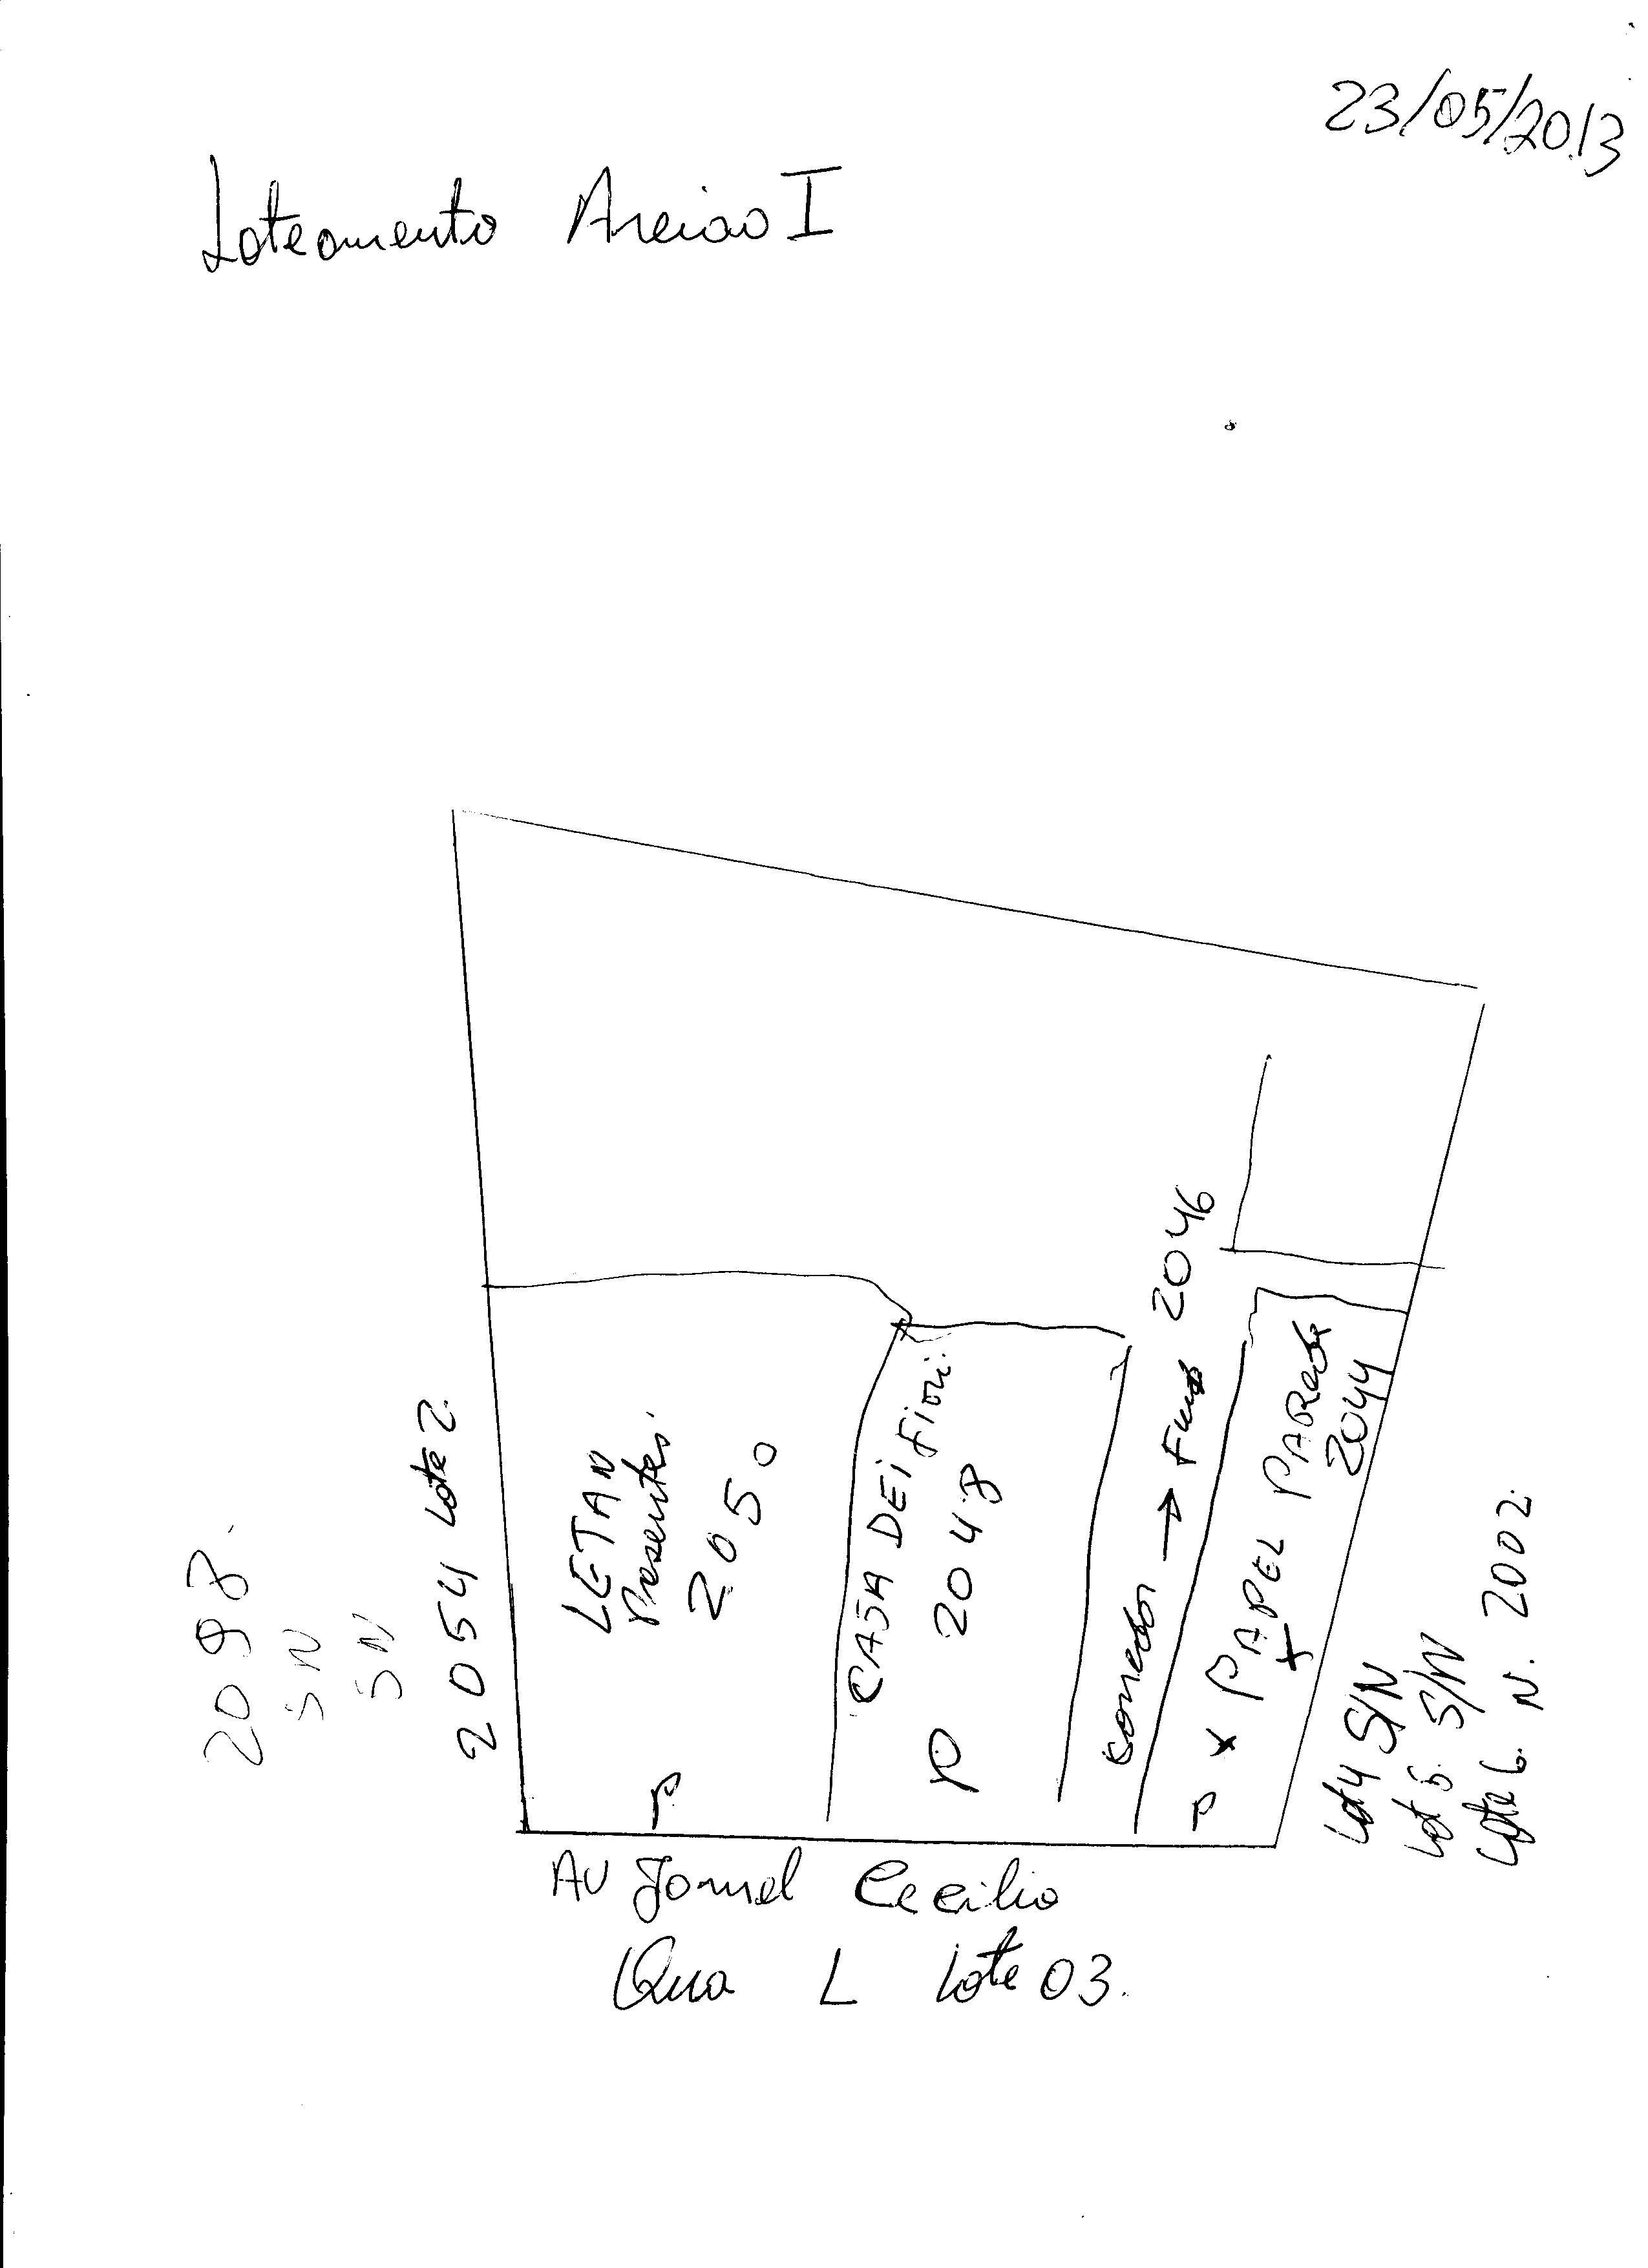 23/05/2013
Loteamento Areiao I
2098.
SN
SN
2054 Lote 2
LETAN
Presentes.
2050
P
CASA DEI FIORI.
P 2048
corredor → Fundo 2046
P x PAPEL PARede
x
2044
Lot 4 S/N
Lot 5. S/N
Lote 6. N. 2002.
AV Jamel Cecilio
Qua L Lote 03.